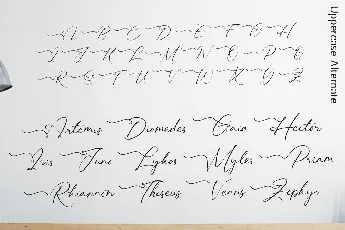 A B C D E F G H
I J K L M N O P Q
R S T U V W X Y Z
Artemis Diomedes Gaia Hector
Isis Juno Lykos Myles Priam
Rhiannon Theseus Venus Zephyr
Uppercase Alternate